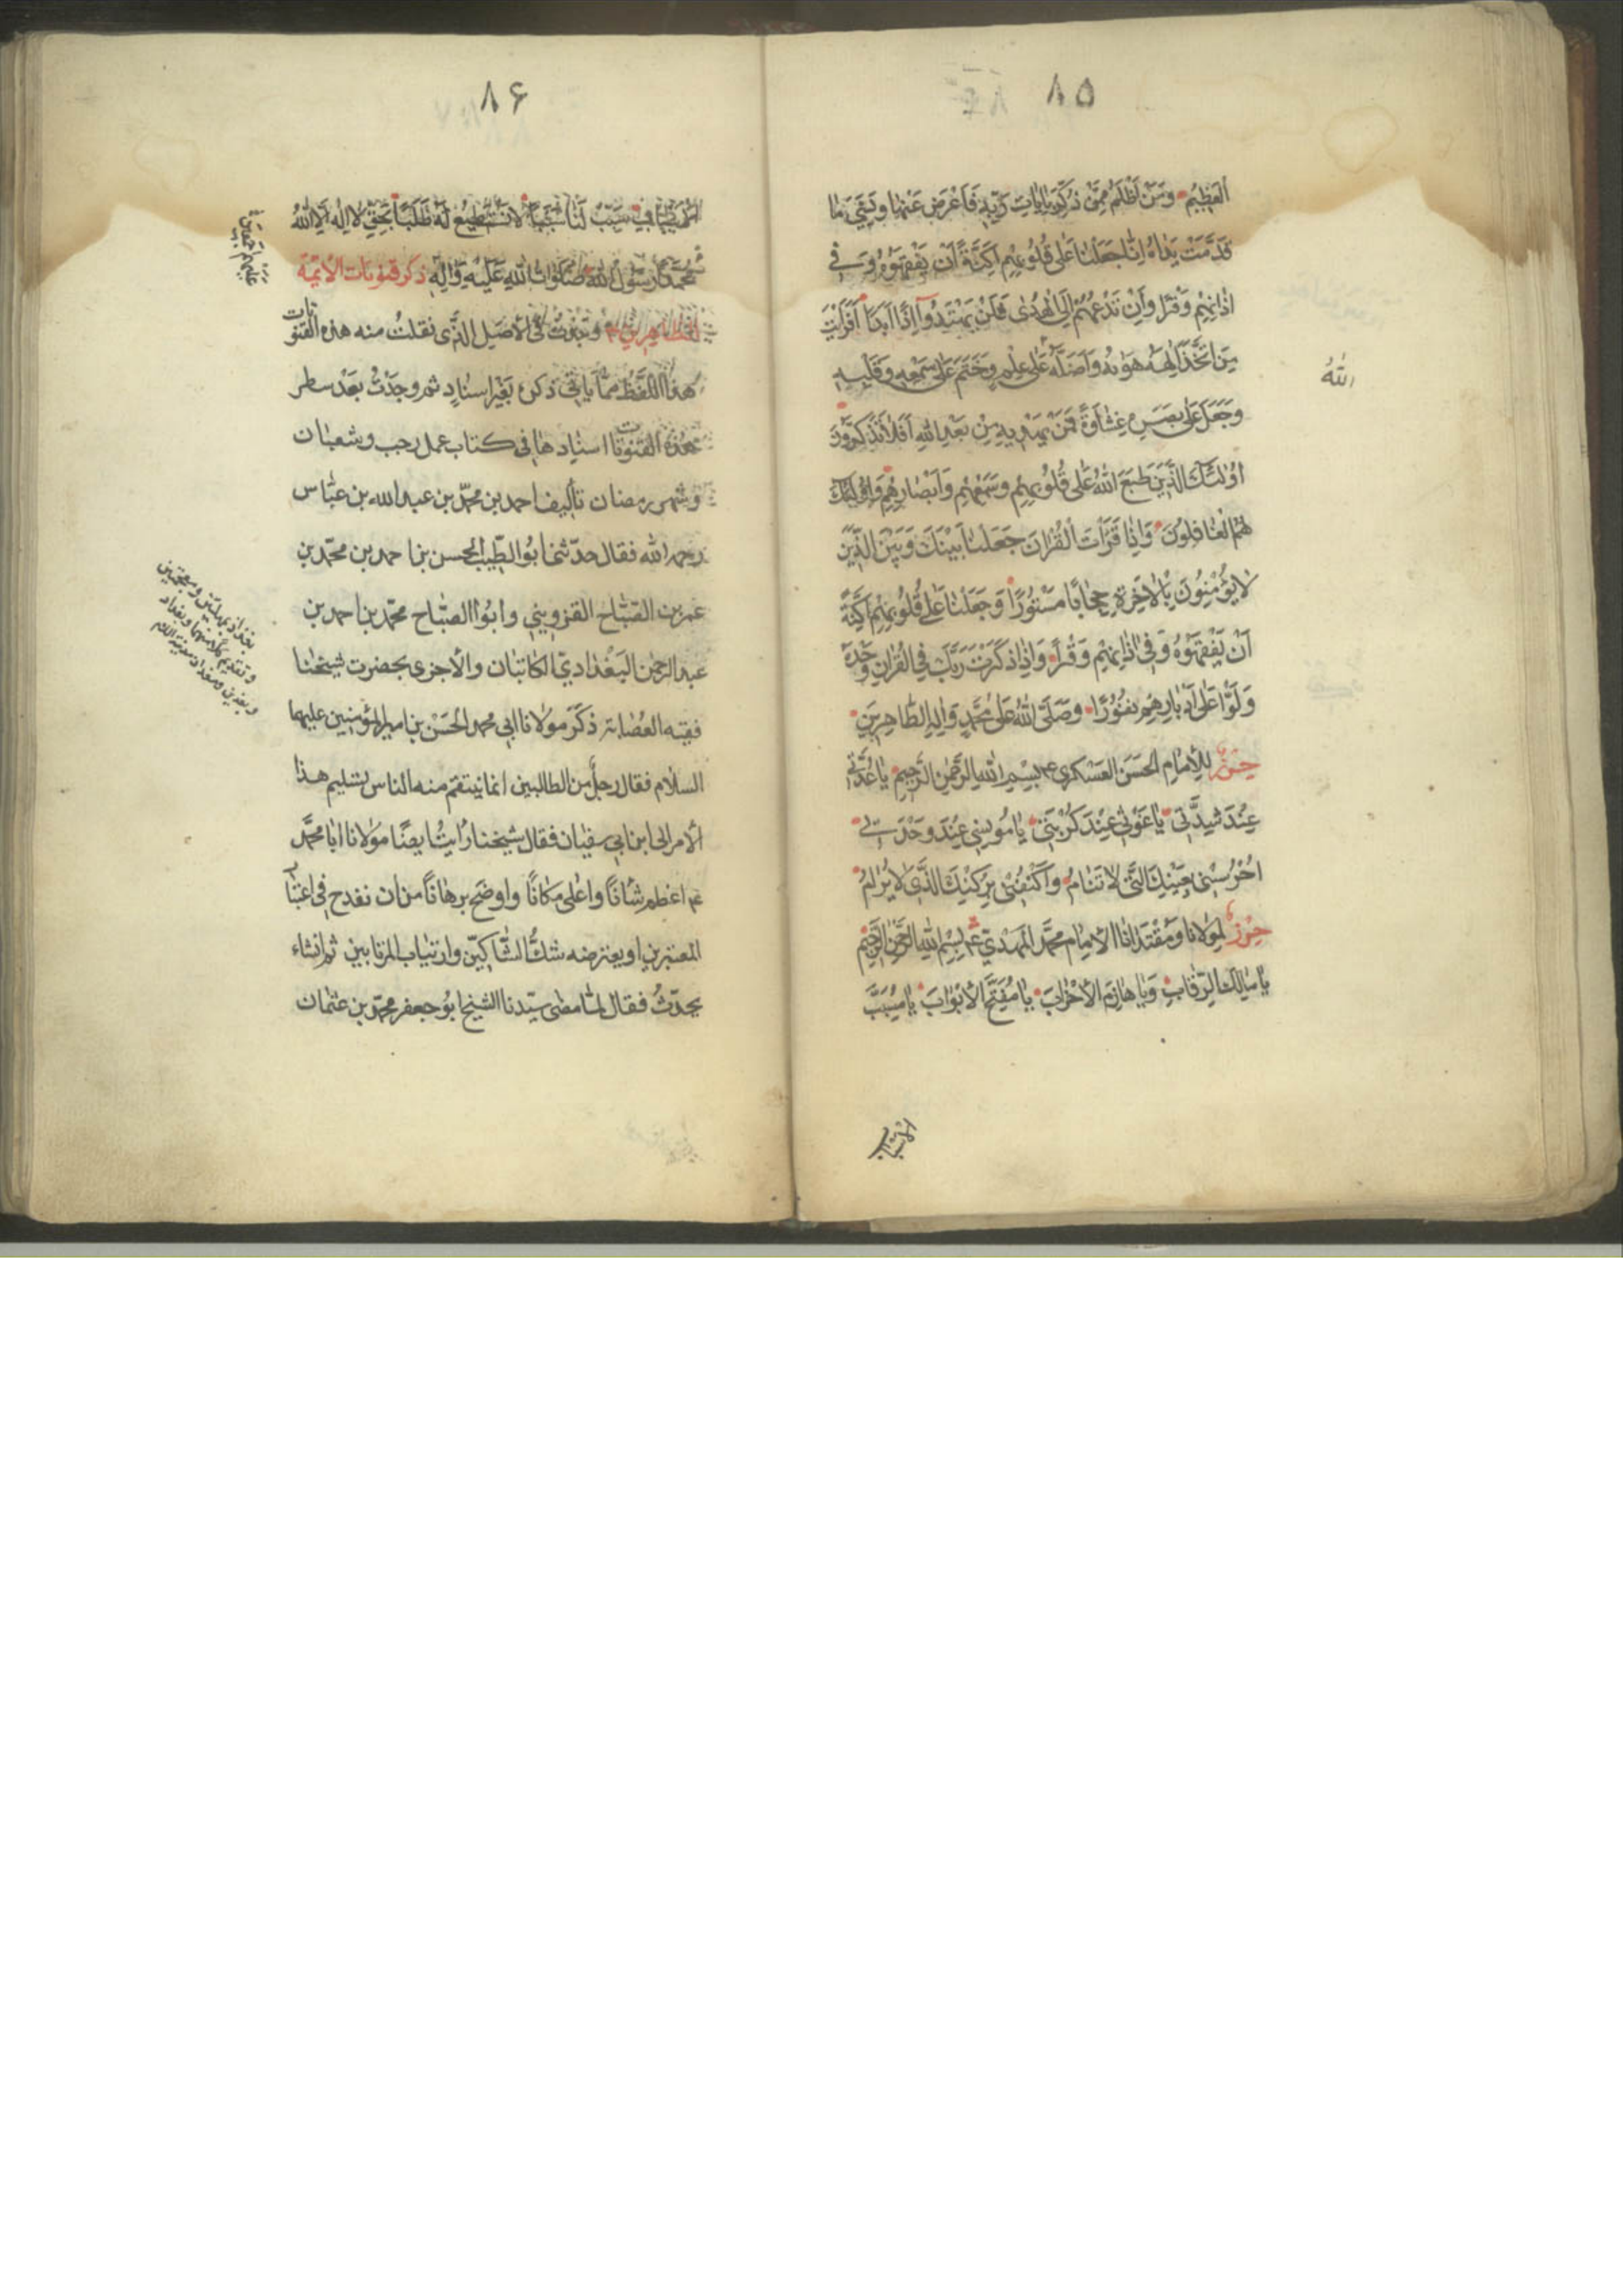 ٨٥
العَظِيمُ وَمَنْ أَظْلَمُ مِمَّنْ ذُكِّرَ بِاٰيَاتِ رَبِّهِ فَاَعْرَضَ عَنْهَا وَنَسِيَ مَا
قَدَّمَتْ يَدَاهُ اِنَّا جَعَلْنَا عَلَى قُلُوبِهِمْ اَكِنَّةً اَنْ يَفْقَهُوهُ وَفِي
اٰذَانِهِمْ وَقْرًا وَاِنْ تَدْعُهُمْ اِلَى الْهُدٰى فَلَنْ يَهْتَدُوا اِذًا اَبَدًا اَفَرَاَيْتَ
مَنِ اتَّخَذَ اِلٰهَهُ هَوٰيهُ وَاَضَلَّهُ عَلٰى عِلْمٍ وَخَتَمَ عَلٰى سَمْعِهِ وَقَلْبِهِ
اللهُ
وَجَعَلَ عَلٰى بَصَرِهِ غِشَاوَةً فَمَنْ يَهْدِيهِ مِنْ بَعْدِ اللهِ اَفَلَا تَذَكَّرُونَ
اُولٰئِكَ الَّذِينَ طَبَعَ اللهُ عَلٰى قُلُوبِهِمْ وَسَمْعِهِمْ وَاَبْصَارِهِمْ وَاُولٰئِكَ
هُمُ الْغَافِلُونَ وَاِذَا قَرَأْتَ الْقُرْاٰنَ جَعَلْنَا بَيْنَكَ وَبَيْنَ الَّذِينَ
لَا يُؤْمِنُونَ بِالْاٰخِرَةِ حِجَابًا مَسْتُورًا وَجَعَلْنَا عَلٰى قُلُوبِهِمْ اَكِنَّةً
اَنْ يَفْقَهُوهُ وَفِي اٰذَانِهِمْ وَقْرًا وَاِذَا ذَكَرْتَ رَبَّكَ فِي الْقُرْاٰنِ وَحْدَهُ
وَلَّوْا عَلٰى اَدْبَارِهِمْ نُفُورًا وَصَلَّى اللهُ عَلٰى مُحَمَّدٍ وَاٰلِهِ الطَّاهِرِينَ
حِرْزٌ لِلْاِمَامِ الحَسَنِ العَسْكَرِي ع بِسْمِ اللهِ الرَّحْمٰنِ الرَّحِيمِ يَا عُدَّتِي
عِنْدَ شِدَّتِي يَا غَوْثِي عِنْدَ كُرْبَتِي يَا مُونِسِي عِنْدَ وَحْدَتِي
اُحْرُسْنِي بِعَيْنِكَ الَّتِي لَا تَنَامُ وَاكْنُفْنِي بِرُكْنِكَ الَّذِي لَا يُرَامُ
حِرْزٌ لِمَوْلَانَا وَمُقْتَدَانَا الْاِمَامِ مُحَمَّدِ الْمَهْدِيّ ع بِسْمِ اللهِ الرَّحْمٰنِ الرَّحِيمِ
يَا مَالِكَ الرِّقَابِ وَيَا هَازِمَ الْاَحْزَابِ يَا مُفَتِّحَ الْاَبْوَابِ يَا مُسَبِّبَ
الْاَسْبَابِ
٨۶
سَبِّبْ لَنَا سَبَبًا لَا نَسْتَطِيعُ لَهُ طَلَبًا بِحَقِّ لَا اِلٰهَ اِلَّا اللهُ
مُحَمَّدٌ رَسُولُ اللهِ صَلَوَاتُ اللهِ عَلَيْهِ وَاٰلِهِ ذكر قنوتات الائمّة
عليهم
الطاهرين وَجَدْتُ فِي الْاَصْلِ الَّذِي نَقَلْتُ منه هذه القنوتات
هذا اللفظ ممّا يأتي ذكره بغير اسنادٍ ثم وجدتُ بعد سطر
هذه القنوتات اسنادها في كتاب عمل رجب وشعبان
وشهر رمضان تأليف احمد بن محمّد بن عبد الله بن عبّاس
رحمه الله فقال حدّثنا ابوُ الطيب الحسن بن احمد بن محمّد بن
عمر بن الصّبّاح القزويني وابوُا الصبّاح محمّد بن احمد بن
عبد الرحمن البغدادي الكاتبان والأجرى بحضرت شيخنا
فقيه العصابة ذكر مولانا ابي محمد الحسن بن امير المؤمنين عليهما
السلام فقال رجلٌ من الطالبين انما ينتقم منه الناس بتسليم هذا
الأمر الى ابن ابي سفيان فقال شيخنا رايت ايضًا مولانا ابا محمّد
ع اعظم شأنًا واعلى مكانًا واوضح برهانًا من ان نقدح في
المعتبرين او يعترضه شكُّ الشّاكّين وارتياب المرتابين ثم انشاء
يحدّثُ فقال لمّا مضى سيّدنا الشيخ ابوُ جعفر محمّد بن عثمان